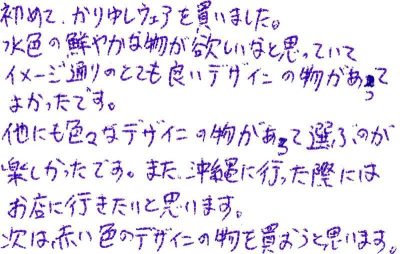 初めて、かりゆしウェアを買いました。
水色の鮮やかな物が欲しいなと思っていて
イメージ通りのとても良いデザインの物があって
よかったです。
他にも色々なデザインの物があって選ぶのが
楽しかったです。また、沖縄に行った際には
お店に行きたいと思います。
次は、赤い色のデザインの物を買おうと思います。